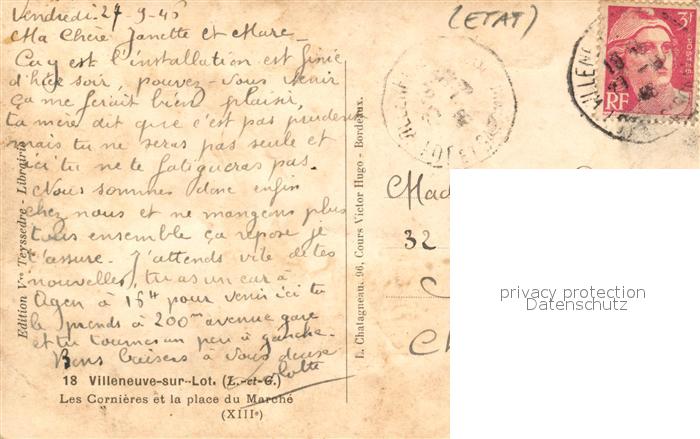 Vendredi 27-9-46
Ma Chere Janette et Marc
Cay est l'installation est finie
d'hier soir, pouvez-vous venir
ça me ferait bien plaisir,
ta mère dit que c'est pas prudent
mais tu ne seras pas seule et
ici tu ne te fatigueras pas.
Nous sommes donc enfin
chez nous et ne mangeons plus
tous ensemble ça repose je
t'assure. J'attends vite de tes
nouvelles, tu as un car à
Agen à 16H pour venir ici tu
le prends à 200m avenue gare
et tu tournes un peu à gauche.
Bons baisers à vous deux
18 Villeneuve-sur-Lot. (L.-et-G.)
Les Cornières et la place du Marché
(XIIIe)
Edition Vve Teyssedre - Librairie
L. Chatagneau, 96, Cours Victor Hugo - Bordeaux.
(ETAT)
3F
POSTES
RF
Mad
32
privacy protection
Datenschutz